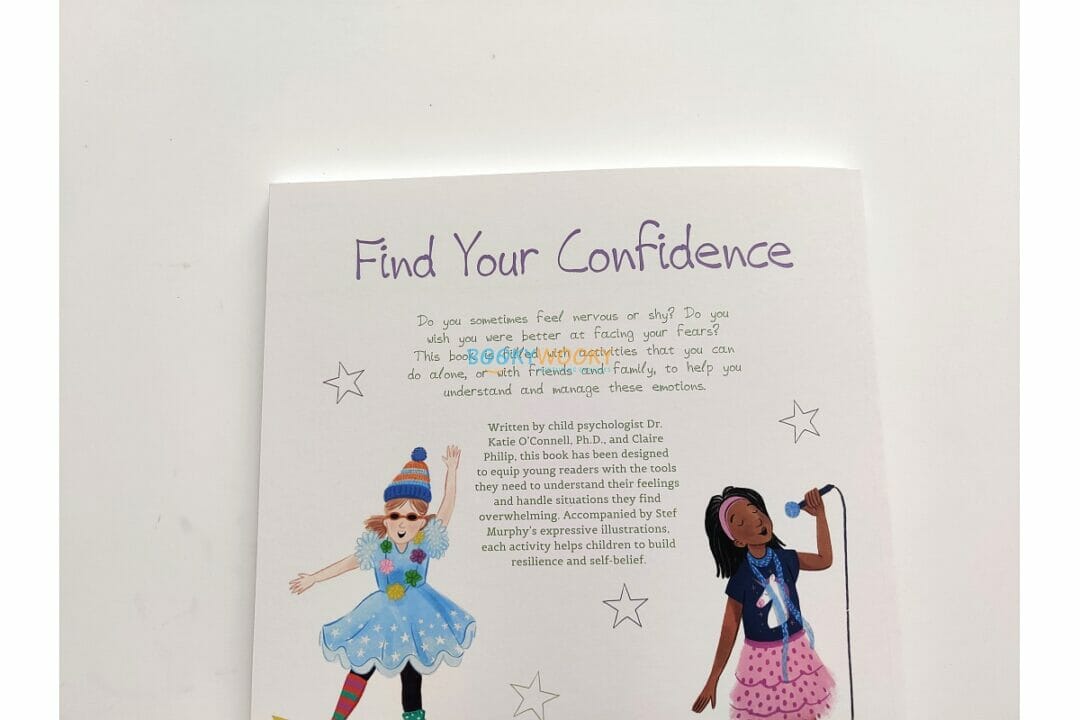 Find Your Confidence
Do you sometimes feel nervous or shy? Do you
wish you were better at facing your fears?
This book is filled with activities that you can
do alone, or with friends and family, to help you
understand and manage these emotions.
BOOKYWOOKY
Written by child psychologist Dr.
Katie O'Connell, Ph.D., and Claire
Philip, this book has been designed
to equip young readers with the tools
they need to understand their feelings
and handle situations they find
overwhelming. Accompanied by Stef
Murphy's expressive illustrations,
each activity helps children to build
resilience and self-belief.